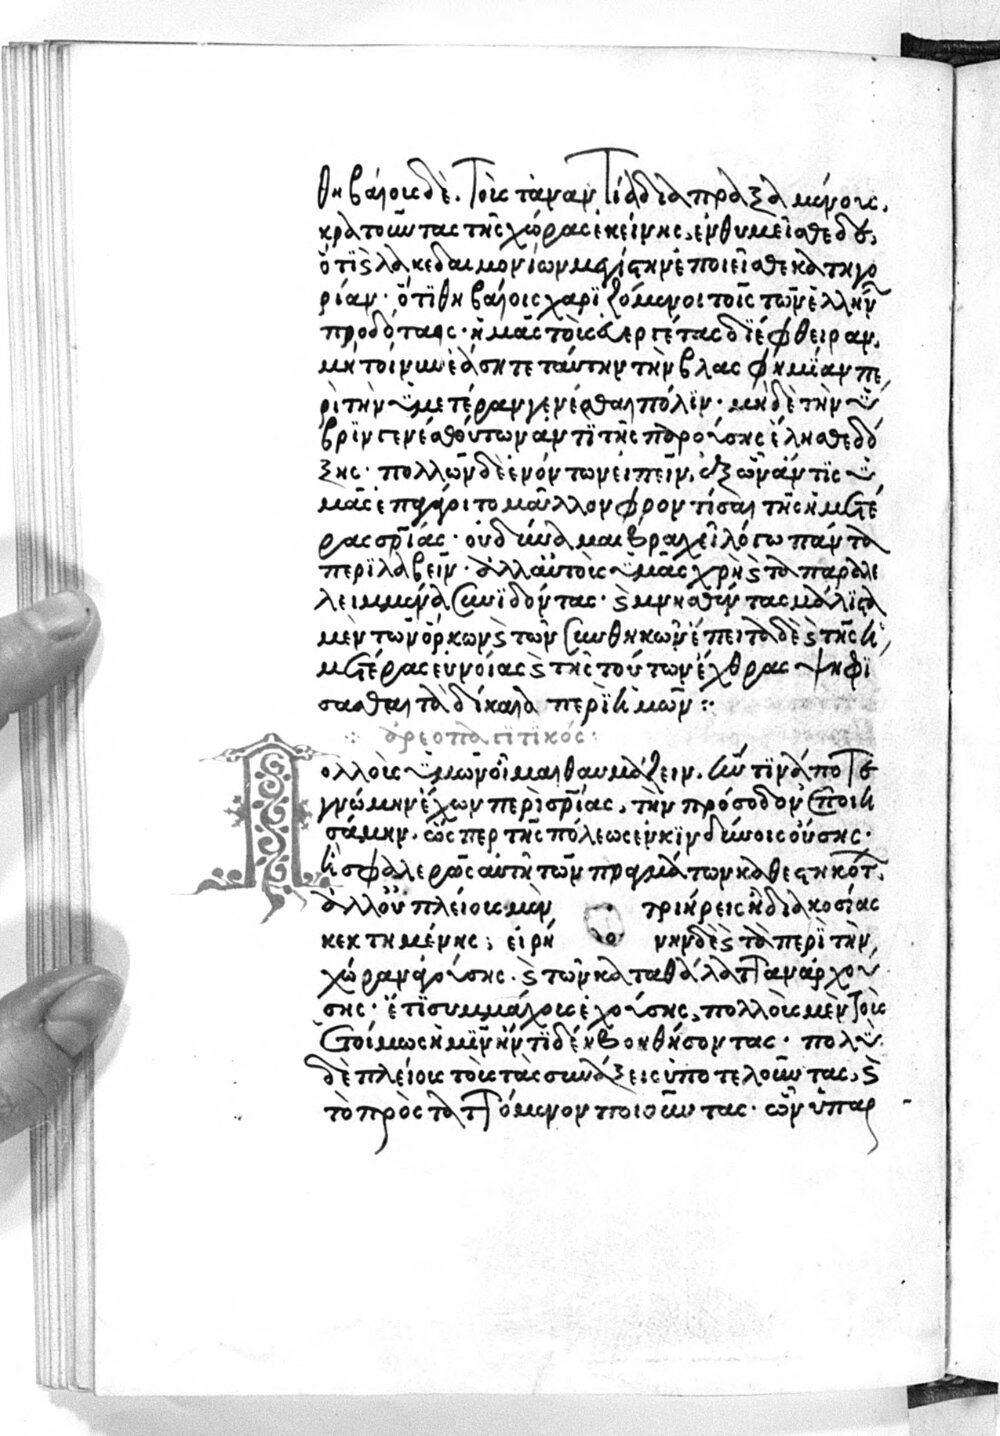 θηβαίοις δὲ τοῖς τἀναντία διαπραξαμένοις,
κρατοῦντας τῆς χώρας ἐκείνης, ἐνθυμεῖσθε δ' οὖν,
ὅτι καὶ λακεδαιμονίων μεγίστην ἐποιεῖσθε κατηγο
ρίαν· ὅτι θηβαίοις χαριζόμενοι τοῖς τῶν ἑλλήνων
προδόταις· ἡμᾶς τοὺς εὐεργέτας διέφθειραν.
μὴ τοίνυν ἐάσητε ταύτην τὴν βλασφημίαν πε
ρὶ τὴν ὑμετέραν γενέσθαι πόλιν· μηδὲ τὴν ὕ
βριν τὴν τούτων ἀντὶ τῆς παρούσης ἕλησθε δό
ξης· πολλῶν δὲ ἐνόντων εἰπεῖν, ἐξ ὧν ἄν τις ὑ
μᾶς ἐπαγάγοιτο μᾶλλον φροντίσαι τῆς ἡμετέ
ρας σωτηρίας· οὐ δύναμαι βραχεῖ λόγω πάντα
περιλαβεῖν· ἀλλ' αὐτοὺς ὑμᾶς χρὴ καὶ τὰ παραλε
λειμμένα συνιδόντας· καὶ μνησθέντας μάλιστα
μὲν τῶν ὅρκων καὶ τῶν συνθηκῶν ἔπειτα δὲ καὶ τῆς ἡ
μετέρας εὐνοίας καὶ τῆς τούτων ἔχθρας ψηφί
σασθαι τὰ δίκαια περὶ ἡμῶν:
ἀρεοπαγιτικός:
Πολλοὺς ὑμῶν οἶμαι θαυμάζειν, ἥν τινά ποτε
γνώμην ἔχων περὶ σωτηρίας, τὴν πρόσοδον ἐποιη
σάμην, ὥσπερ τῆς πόλεως ἐν κινδύνοις οὔσης·
ἢ σφαλερῶς αὐτῆ τῶν πραγμάτων καθεστηκότων.
ἀλλ' οὐ πλείους μὲν τριήρεις ἢ διακοσίας
κεκτημένης; εἰρήνην δὲ καὶ τὰ περὶ τὴν
χώραν ἀγούσης. καὶ τῶν κατὰ θάλατταν ἀρχού
σης· ἔτι συμμάχους ἐχούσης, πολλοὺς μὲν τοὺς
ἑτοίμως ἡμῖν ἤν τι δέη βοηθήσοντας· πολὺ
δὲ πλείους τοὺς τὰς συντάξεις ὑποτελοῦντας, καὶ
τὸ προσταττόμενον ποιοῦντας· ὧν ὑπαρ